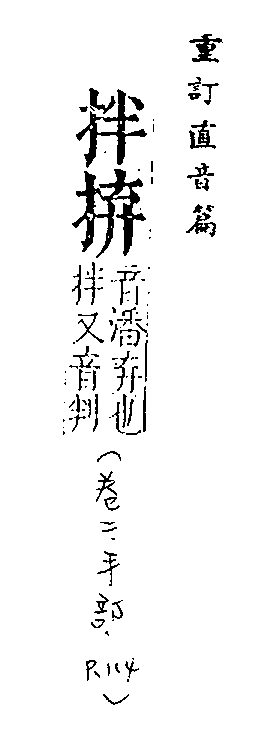 重訂直音篇
拌拚
音潘弃也
拌又音判
(卷二、手部、P.114)